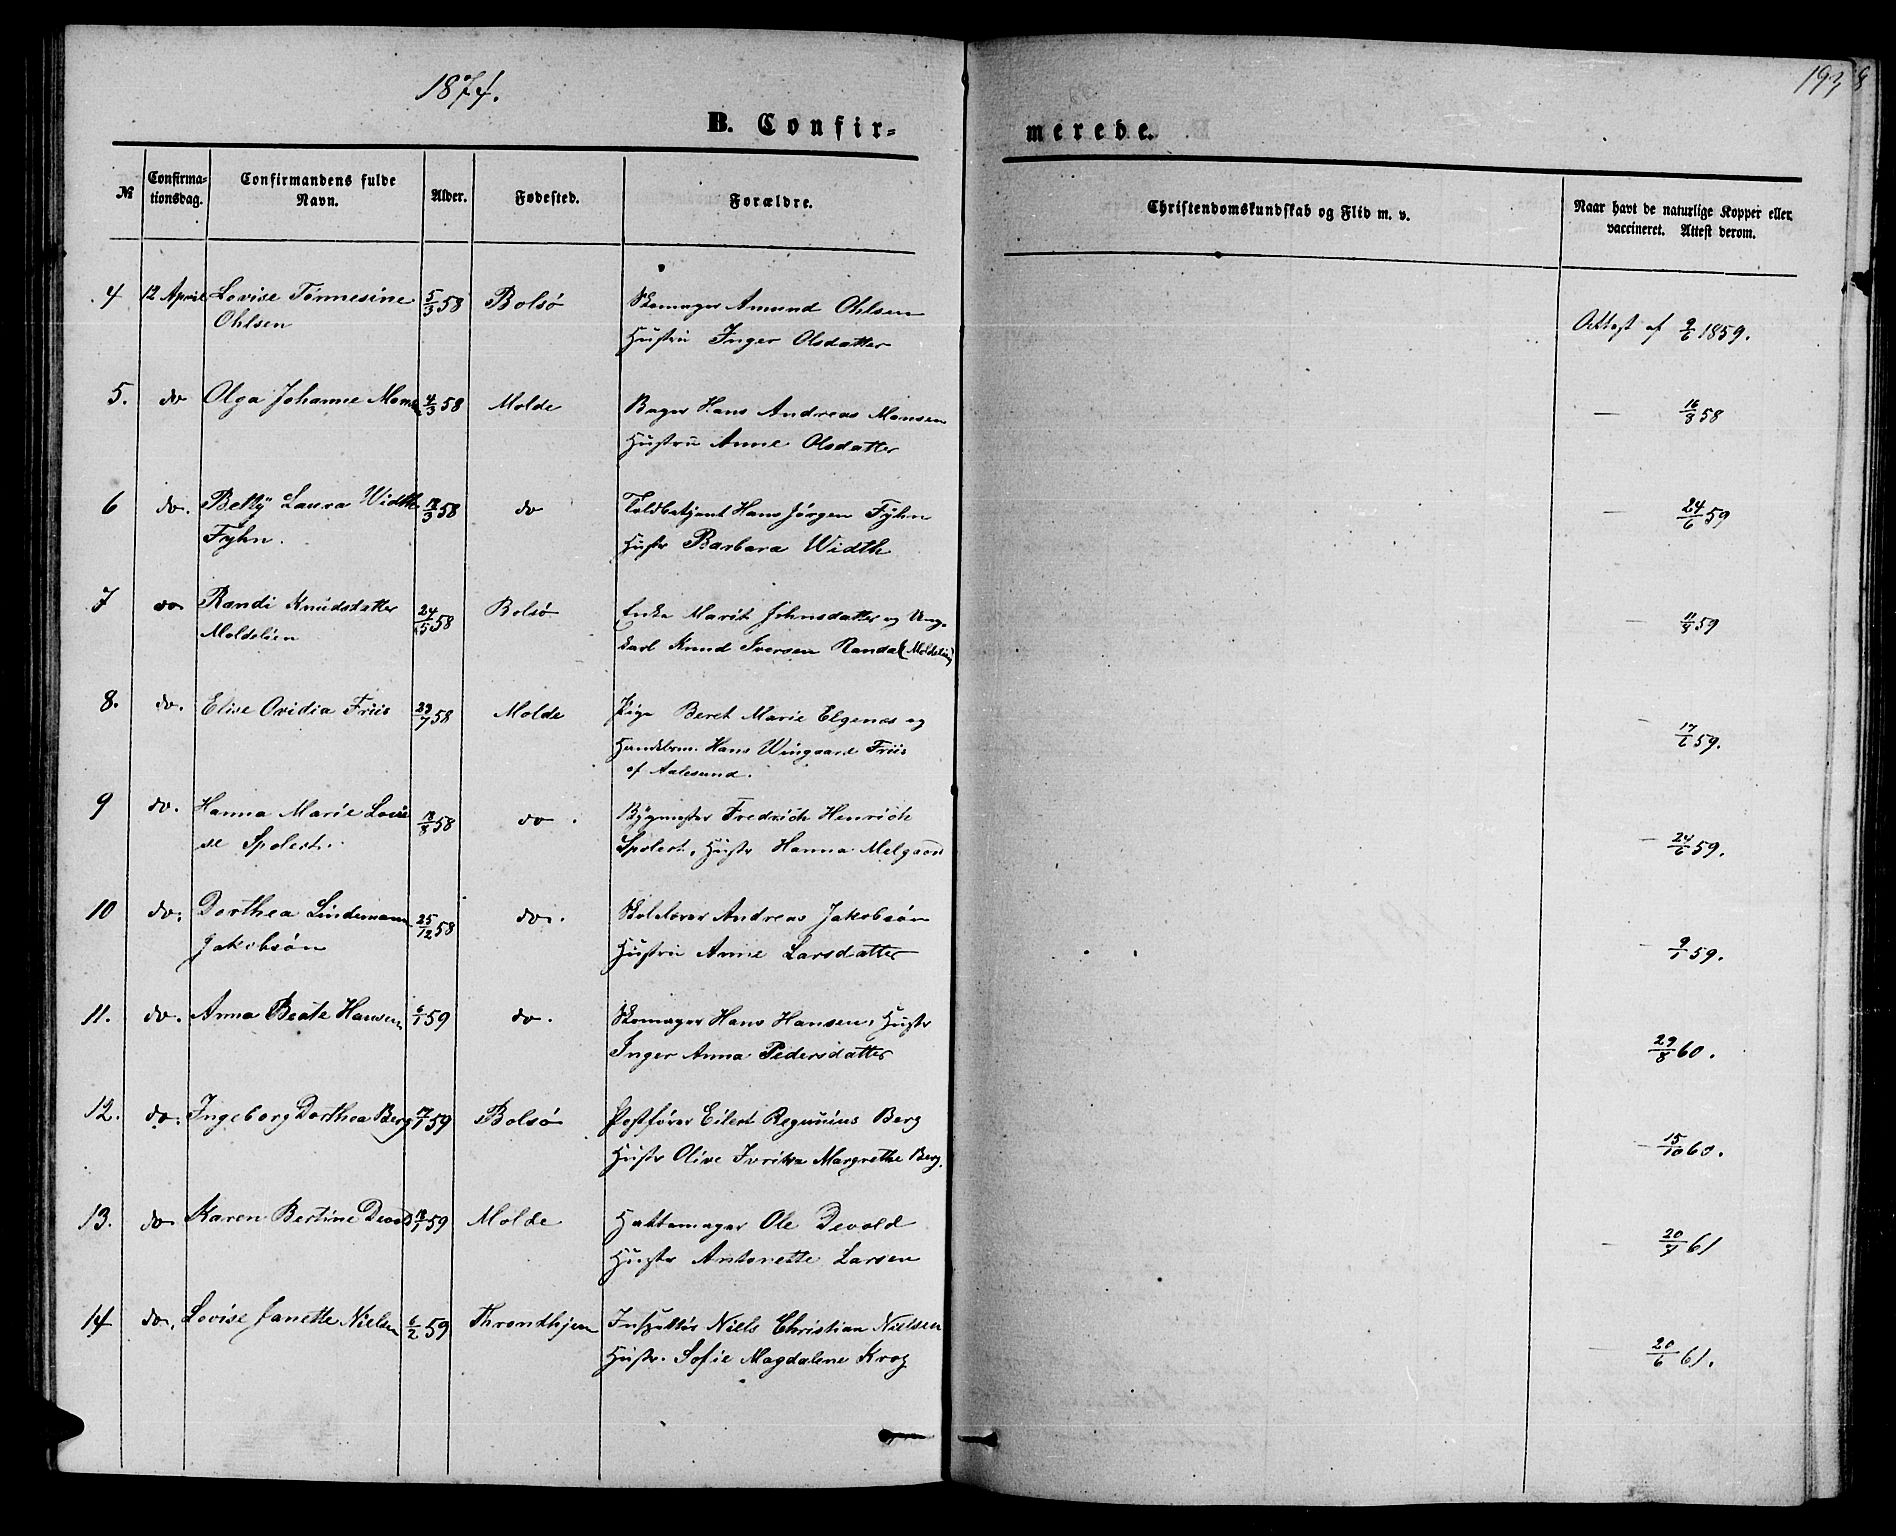 1874.
193
B. Confir=
merede.
№
Confirma-
tionsdag.
Confirmandens fulde
Navn.
Alder.
Fødested.
Forældre.
Christendomskundskab og Flid m. v.
Naar havt de naturlige Kopper eller
vaccineret. Attest derom.
4 12 April Lovise Tønnesine 5/3 58 Bolsø Skomager Amund Ohlsen
Ohlsen Hustru Inger Olsdatter
Attest af 9/6 1859.
5. do Olga Johanne Monsen 4/3 58 Molde Bager Hans Andreas Monsen — 16/8 58
Hustru Anne Olsdatter
6 do. Betty Laura Width 12/3 58 do Toldbetjent Hans Jørgen Fyhn — 24/6 59
Fyhn. Hustr Barbara Width
7 do Randi Knudsdatter 24/5 58 Bolsø Enke Marit Johnsdatter og Ung- — 11/9 59
Moldelien karl Knud Iversen Randa (Moldelien)
8. do. Elise Ovidia Friis 29/7 58 Molde Pige Beret Marie Elgenes og — 17/6 59.
Handelsbm. Hans Wingaard Friis
af Aalesund.
9 do. Hanna Marie Loui 18/8 58 do. Bygmester Fredrich Henrich
se Spolert. Spolert, Hustr Hanna Melgaard — 24/6 59.
10 do. Dorthea Lindemann 25/12 58 do. Skolelærer Andreas Jakobsøn
Jakobsøn Hustru Anne Larsdatter — 9/1 59.
11. do. Anna Beate Hansen 6/1 59 do. Skomager Hans Hansen, Hustr
Inger Anna Pedersdatter 29/8 60.
12. do. Ingeborg Dorthea Berg 17/1 59 Bolsø Postfører Eilert Reginius Berg
Hustr Olive Ivrikka Margrethe Berg. — 15/10 60.
13. do Karen Bertine Devold 18/1 59 Molde Hattemager Ole Devold
Hustr Antonette Larsen — 20/9 61
14 do. Lovise Janette Nielsen 6/2 59 Throndhjem Inspektør Niels Christian Nielsen
Hustr. Sofie Magdalene Krog — 20/6 61.